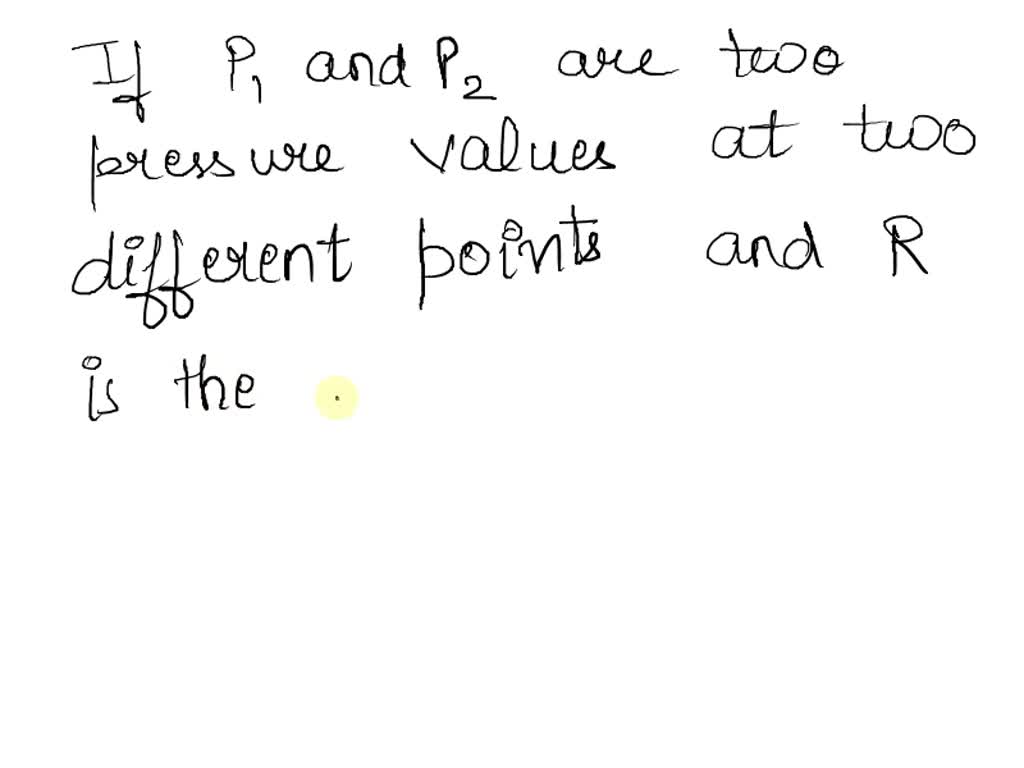 If P₁ and P₂ are two
pressure values at two
different points and R
is the